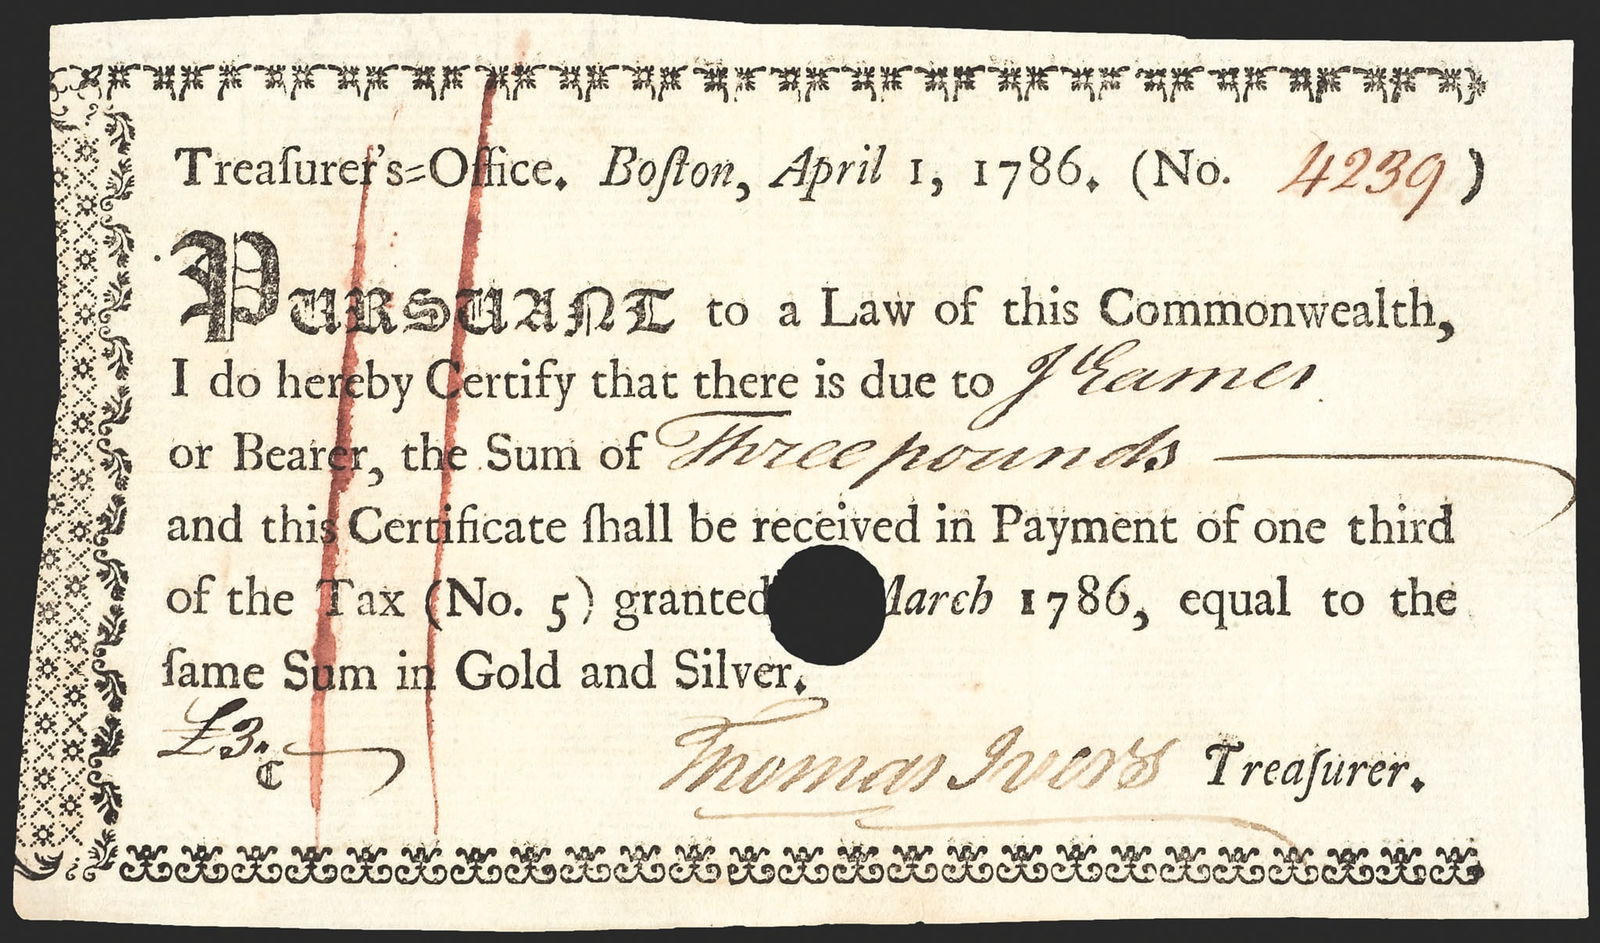 Treaſurer's=Office. Boſton, April 1, 1786. (No. 4239)
PURSUANT to a Law of this Commonwealth,
I do hereby Certify that there is due to J Eames
or Bearer, the Sum of Three pounds
and this Certificate ſhall be received in Payment of one third
of the Tax (No. 5) granted March 1786, equal to the
ſame Sum in Gold and Silver.
£3.
C
Thomas Ivers Treaſurer.